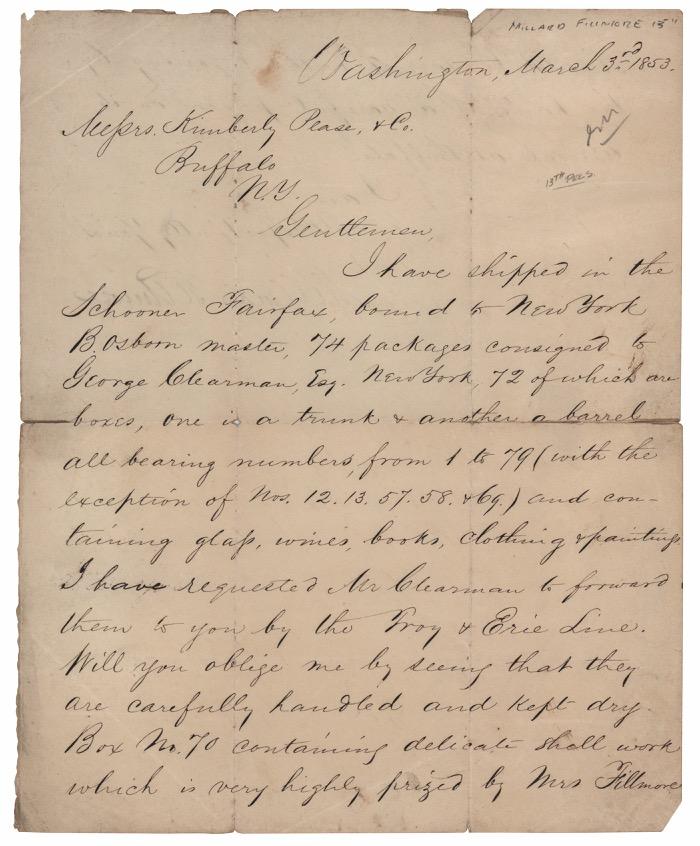 MILLARD FILLMORE 13"
Washington, March 3rd 1853.
Messrs. Kimberly Pease, & Co.
Buffalo
N.Y.
13TH PRES.
Gentlemen,
I have shipped in the
Schooner Fairfax, bound to New York
B. Osborn master, 74 packages consigned to
George Clearman, Esq. New York, 72 of which are
boxes, one is a trunk & another a barrel
all bearing numbers, from 1 to 79 (with the
exception of Nos. 12. 13. 57. 58. & 69.) and con-
taining glass, wines, books, clothing & paintings
I have requested Mr Clearman to forward
them to you by the Troy & Erie Line.
Will you oblige me by seeing that they
are carefully handled and kept dry.
Box No. 70 containing delicate shell work
which is very highly prized by Mrs Fillmore